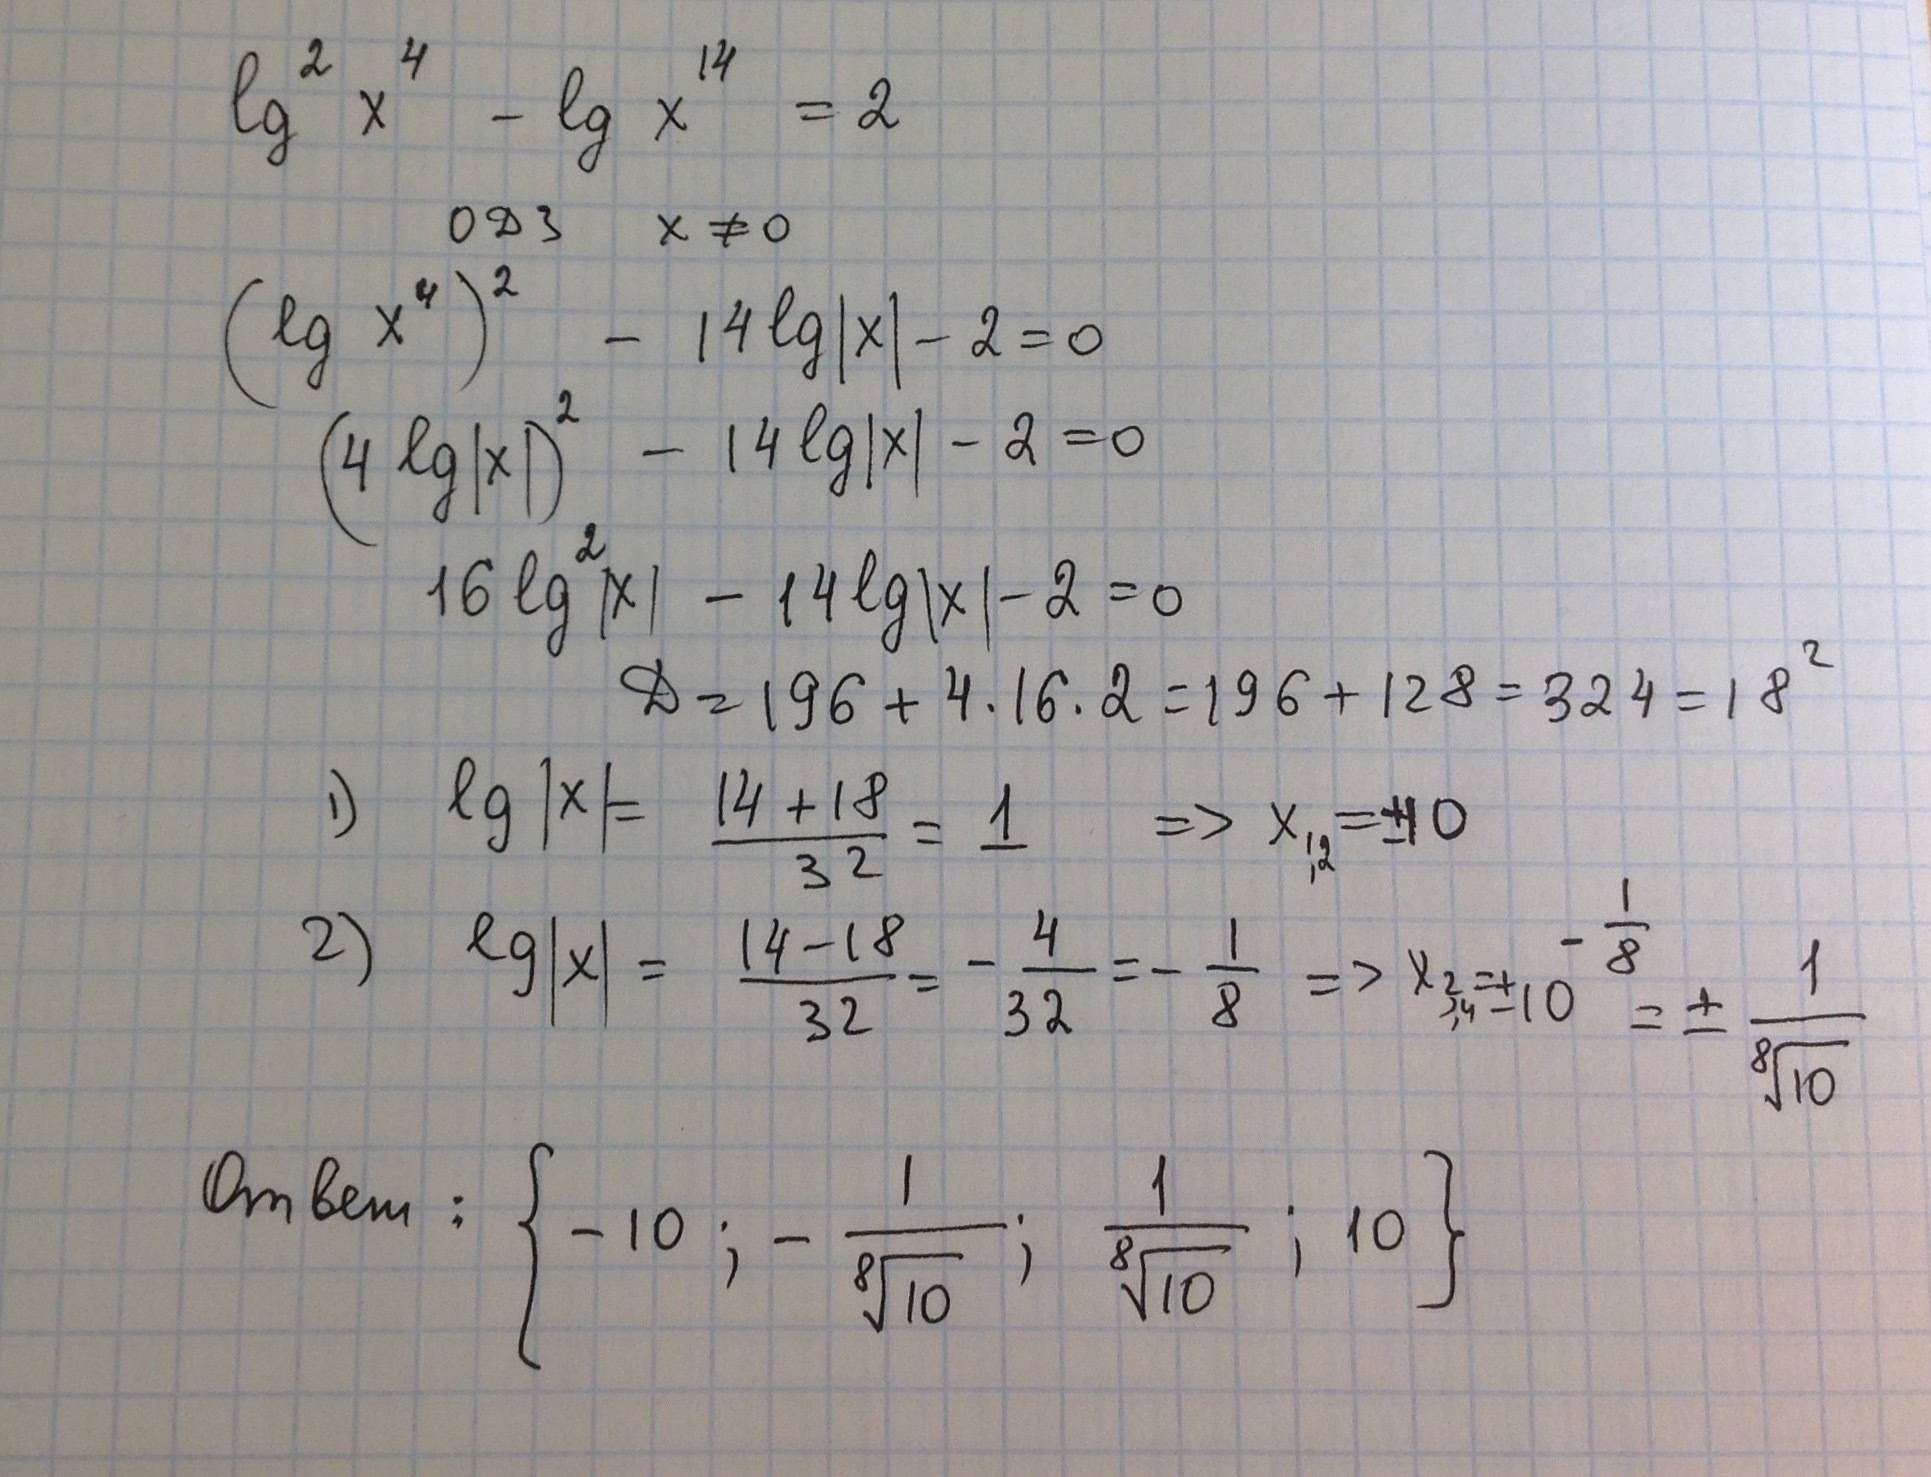 lg² x⁴ - lg x¹⁴ = 2
ОДЗ x ≠ 0
(lg x⁴)² - 14 lg|x| - 2 = 0
(4 lg|x|)² - 14 lg|x| - 2 = 0
16 lg²|x| - 14 lg|x| - 2 = 0
D = 196 + 4·16·2 = 196 + 128 = 324 = 18²
1) lg|x| = (14 + 18)/32 = 1 => x₁,₂ = ±10
2) lg|x| = (14 - 18)/32 = - 4/32 = - 1/8 => x₃,₄ = ±10^(-1/8) = ± 1/⁸√10
Ответ: {-10; - 1/⁸√10; 1/⁸√10; 10}